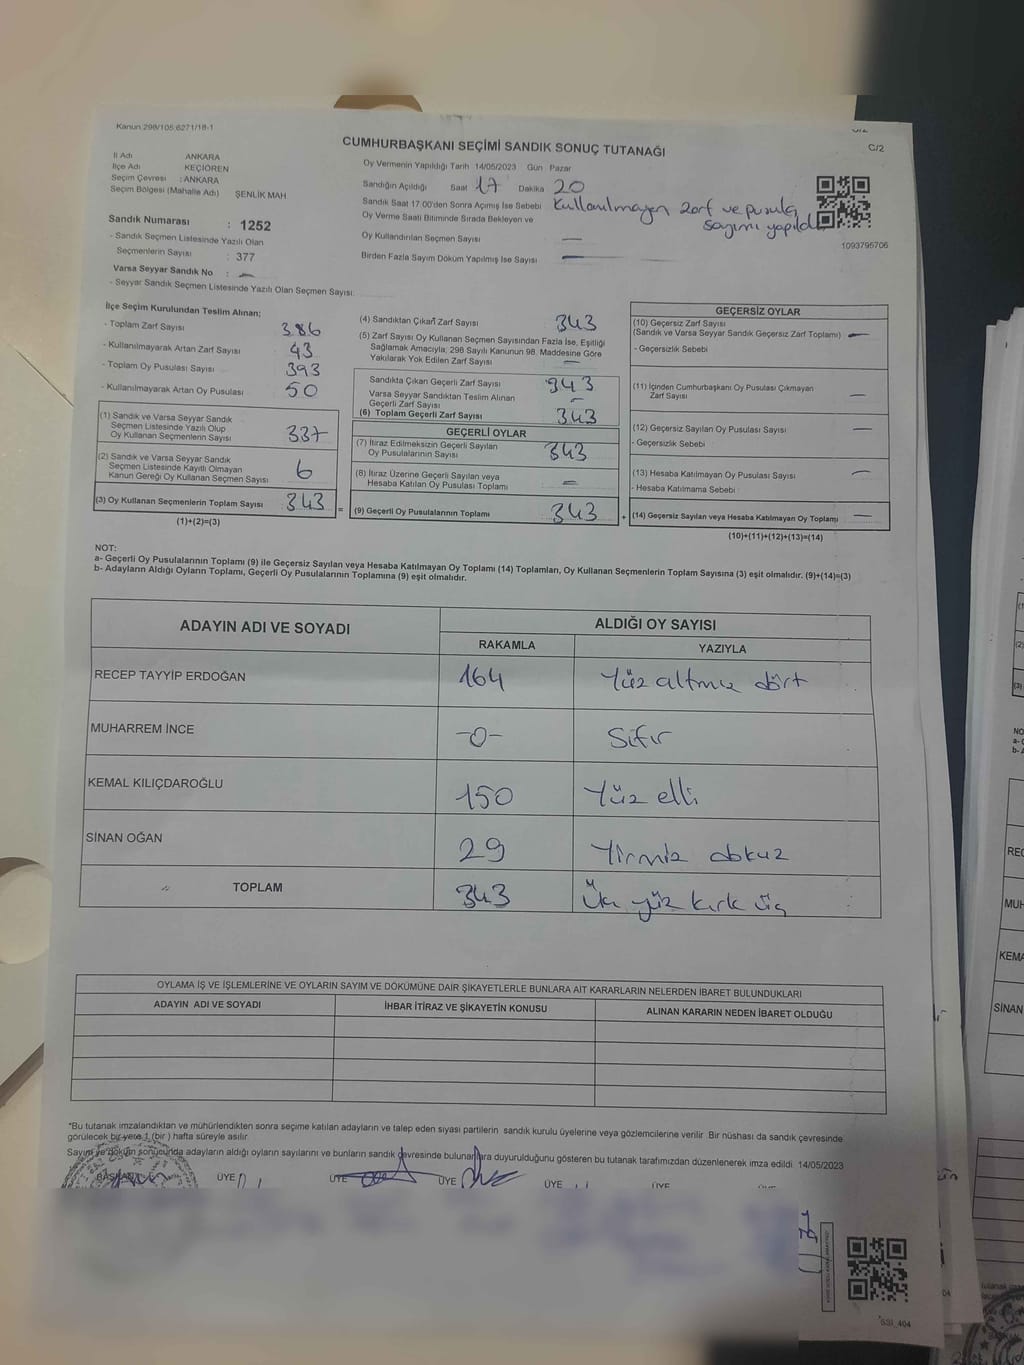 Kanun:298/105;6271/18-1
C/2
CUMHURBAŞKANI SEÇİMİ SANDIK SONUÇ TUTANAĞI
İl Adı ANKARA
İlçe Adı KEÇİÖREN
Seçim Çevresi : ANKARA
Seçim Bölgesi (Mahalle Adı) ŞENLİK MAH
Sandık Numarası : 1252
- Sandık Seçmen Listesinde Yazılı Olan
Seçmenlerin Sayısı : 377
Varsa Seyyar Sandık No : -
- Seyyar Sandık Seçmen Listesinde Yazılı Olan Seçmen Sayısı:
Oy Vermenin Yapıldığı Tarih 14/05/2023 Gün Pazar
Sandığın Açıldığı Saat 17 Dakika 20
Sandık Saat 17.00'den Sonra Açımış İse Sebebi Kullanılmayan zarf ve pusula
Oy Verme Saati Bitiminde Sırada Bekleyen ve sayımı yapıldı
Oy Kullandırılan Seçmen Sayısı —
Birden Fazla Sayım Döküm Yapılmış İse Sayısı —
1093795706
İlçe Seçim Kurulundan Teslim Alınan;
- Toplam Zarf Sayısı 386
- Kullanılmayarak Artan Zarf Sayısı 43
- Toplam Oy Pusulası Sayısı 393
- Kullanılmayarak Artan Oy Pusulası 50
(1) Sandık ve Varsa Seyyar Sandık
Seçmen Listesinde Yazılı Olup
Oy Kullanan Seçmenlerin Sayısı 337
(2) Sandık ve Varsa Seyyar Sandık
Seçmen Listesinde Kayıtlı Olmayan
Kanun Gereği Oy Kullanan Seçmen Sayısı 6
(3) Oy Kullanan Seçmenlerin Toplam Sayısı 343
(1)+(2)=(3)
=
(4) Sandıktan Çıkan Zarf Sayısı 343
(5) Zarf Sayısı Oy Kullanan Seçmen Sayısından Fazla İse, Eşitliği
Sağlamak Amacıyla; 298 Sayılı Kanunun 98. Maddesine Göre
Yakılarak Yok Edilen Zarf Sayısı —
Sandıkta Çıkan Geçerli Zarf Sayısı 343
Varsa Seyyar Sandıktan Teslim Alınan
Geçerli Zarf Sayısı -
(6) Toplam Geçerli Zarf Sayısı 343
GEÇERLİ OYLAR
(7) İtiraz Edilmeksizin Geçerli Sayılan
Oy Pusulalarının Sayısı 343
(8) İtiraz Üzerine Geçerli Sayılan veya
Hesaba Katılan Oy Pusulası Toplamı —
(9) Geçerli Oy Pusulalarının Toplamı 343
+
GEÇERSİZ OYLAR
(10) Geçersiz Zarf Sayısı
(Sandık ve Varsa Seyyar Sandık Geçersiz Zarf Toplamı) —
- Geçersizlik Sebebi
(11) İçinden Cumhurbaşkanı Oy Pusulası Çıkmayan
Zarf Sayısı —
(12) Geçersiz Sayılan Oy Pusulası Sayısı —
- Geçersizlik Sebebi
(13) Hesaba Katılmayan Oy Pusulası Sayısı —
- Hesaba Katılmama Sebebi :
(14) Geçersiz Sayılan veya Hesaba Katılmayan Oy Toplamı —
(10)+(11)+(12)+(13)=(14)
NOT:
a- Geçerli Oy Pusulalarının Toplamı (9) ile Geçersiz Sayılan veya Hesaba Katılmayan Oy Toplamı (14) Toplamları, Oy Kullanan Seçmenlerin Toplam Sayısına (3) eşit olmalıdır. (9)+(14)=(3)
b- Adayların Aldığı Oyların Toplamı, Geçerli Oy Pusulalarının Toplamına (9) eşit olmalıdır.
ADAYIN ADI VE SOYADI ALDIĞI OY SAYISI
RAKAMLA YAZIYLA
RECEP TAYYİP ERDOĞAN 164 Yüz altmış dört
MUHARREM İNCE -0- Sıfır
KEMAL KILIÇDAROĞLU 150 Yüz elli
SİNAN OĞAN 29 Yirmi dokuz
TOPLAM 343 Üç yüz kırk üç
OYLAMA İŞ VE İŞLEMLERİNE VE OYLARIN SAYIM VE DÖKÜMÜNE DAİR ŞİKAYETLERLE BUNLARA AİT KARARLARIN NELERDEN İBARET BULUNDUKLARI
ADAYIN ADI VE SOYADI İHBAR İTİRAZ VE ŞİKAYETİN KONUSU ALINAN KARARIN NEDEN İBARET OLDUĞU
*Bu tutanak imzalandıktan ve mühürlendikten sonra seçime katılan adayların ve talep eden siyasi partilerin sandık kurulu üyelerine veya gözlemcilerine verilir .Bir nüshası da sandık çevresinde
görülecek bir yere 1 (bir ) hafta süreyle asılır.
Sayım ve döküm sonucunda adayların aldığı oyların sayılarını ve bunların sandık çevresinde bulunanlara duyurulduğunu gösteren bu tutanak tarafımızdan düzenlenerek imza edildi. 14/05/2023
BAŞKAN ÜYE ÜYE ÜYE ÜYE ÜYE
SSI_404
NO
a-
b-
REC
MUH
KEMA
SİNAN